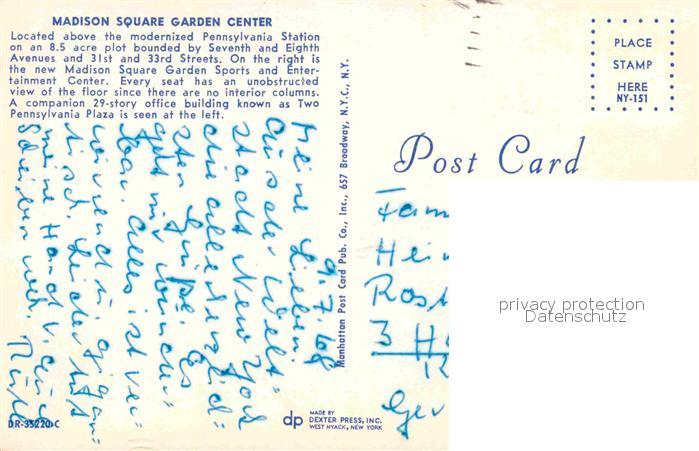 MADISON SQUARE GARDEN CENTER
Located above the modernized Pennsylvania Station
on an 8.5 acre plot bounded by Seventh and Eighth
Avenues and 31st and 33rd Streets. On the right is
the new Madison Square Garden Sports and Enter-
tainment Center. Every seat has an unobstructed
view of the floor since there are no interior columns.
A companion 29-story office building known as Two
Pennsylvania Plaza is seen at the left.
9.7.68
Meine Lieben,
Aus der Welt=
stadt New York
die allerherzlich=
sten Grüße. Es
geht mir wunder=
bar. Alles ist ver=
wirrend u. gigan=
tisch. Leider tut
meine Hand v.
Schreiben weh.
DR-35220-C
Manhattan Post Card Pub. Co., Inc., 657 Broadway, N.Y.C., N.Y.
dp MADE BY
DEXTER PRESS, INC.
WEST NYACK, NEW YORK
PLACE
STAMP
HERE
NY-151
Post Card
Fam
Hei
Rost
3 H
Ger
privacy protection
Datenschutz